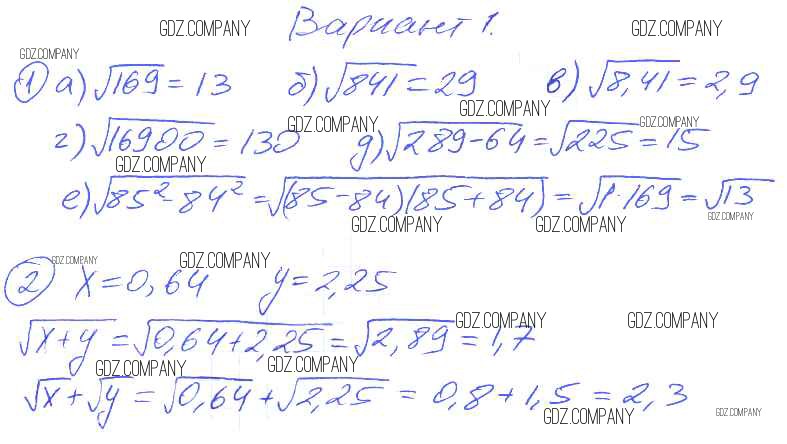 GDZ.COMPANY Вариант 1. GDZ.COMPANY
GDZ.COMPANY
① а) √169 = 13 б) √841 = 29 в) √8,41 = 2,9
GDZ.COMPANY
GDZ.COMPANY GDZ.COMPANY
г) √16900 = 130 д) √289-64 = √225 = 15
GDZ.COMPANY
е) √85² - 84² = √(85-84)(85+84) = √1·169 = √13
GDZ.COMPANY GDZ.COMPANY GDZ.COMPANY
GDZ.COMPANY GDZ.COMPANY
② x = 0,64 y = 2,25
GDZ.COMPANY GDZ.COMPANY
√x+y = √0,64+2,25 = √2,89 = 1,7
GDZ.COMPANY GDZ.COMPANY
√x + √y = √0,64 + √2,25 = 0,8 + 1,5 = 2,3
GDZ.COMPANY GDZ.COMPANY